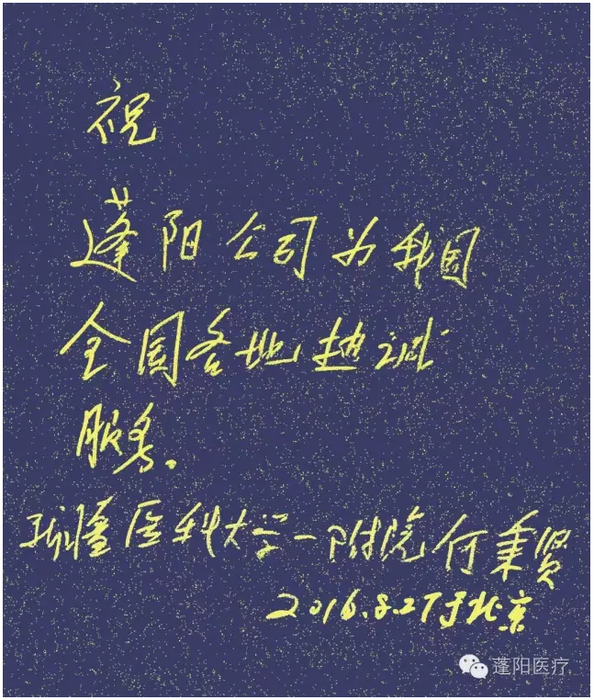 祝
蓬阳公司为我国
全国各地诚
服务。
新疆医科大学一附院何秉贤
2016.8.27于北京
蓬阳医疗